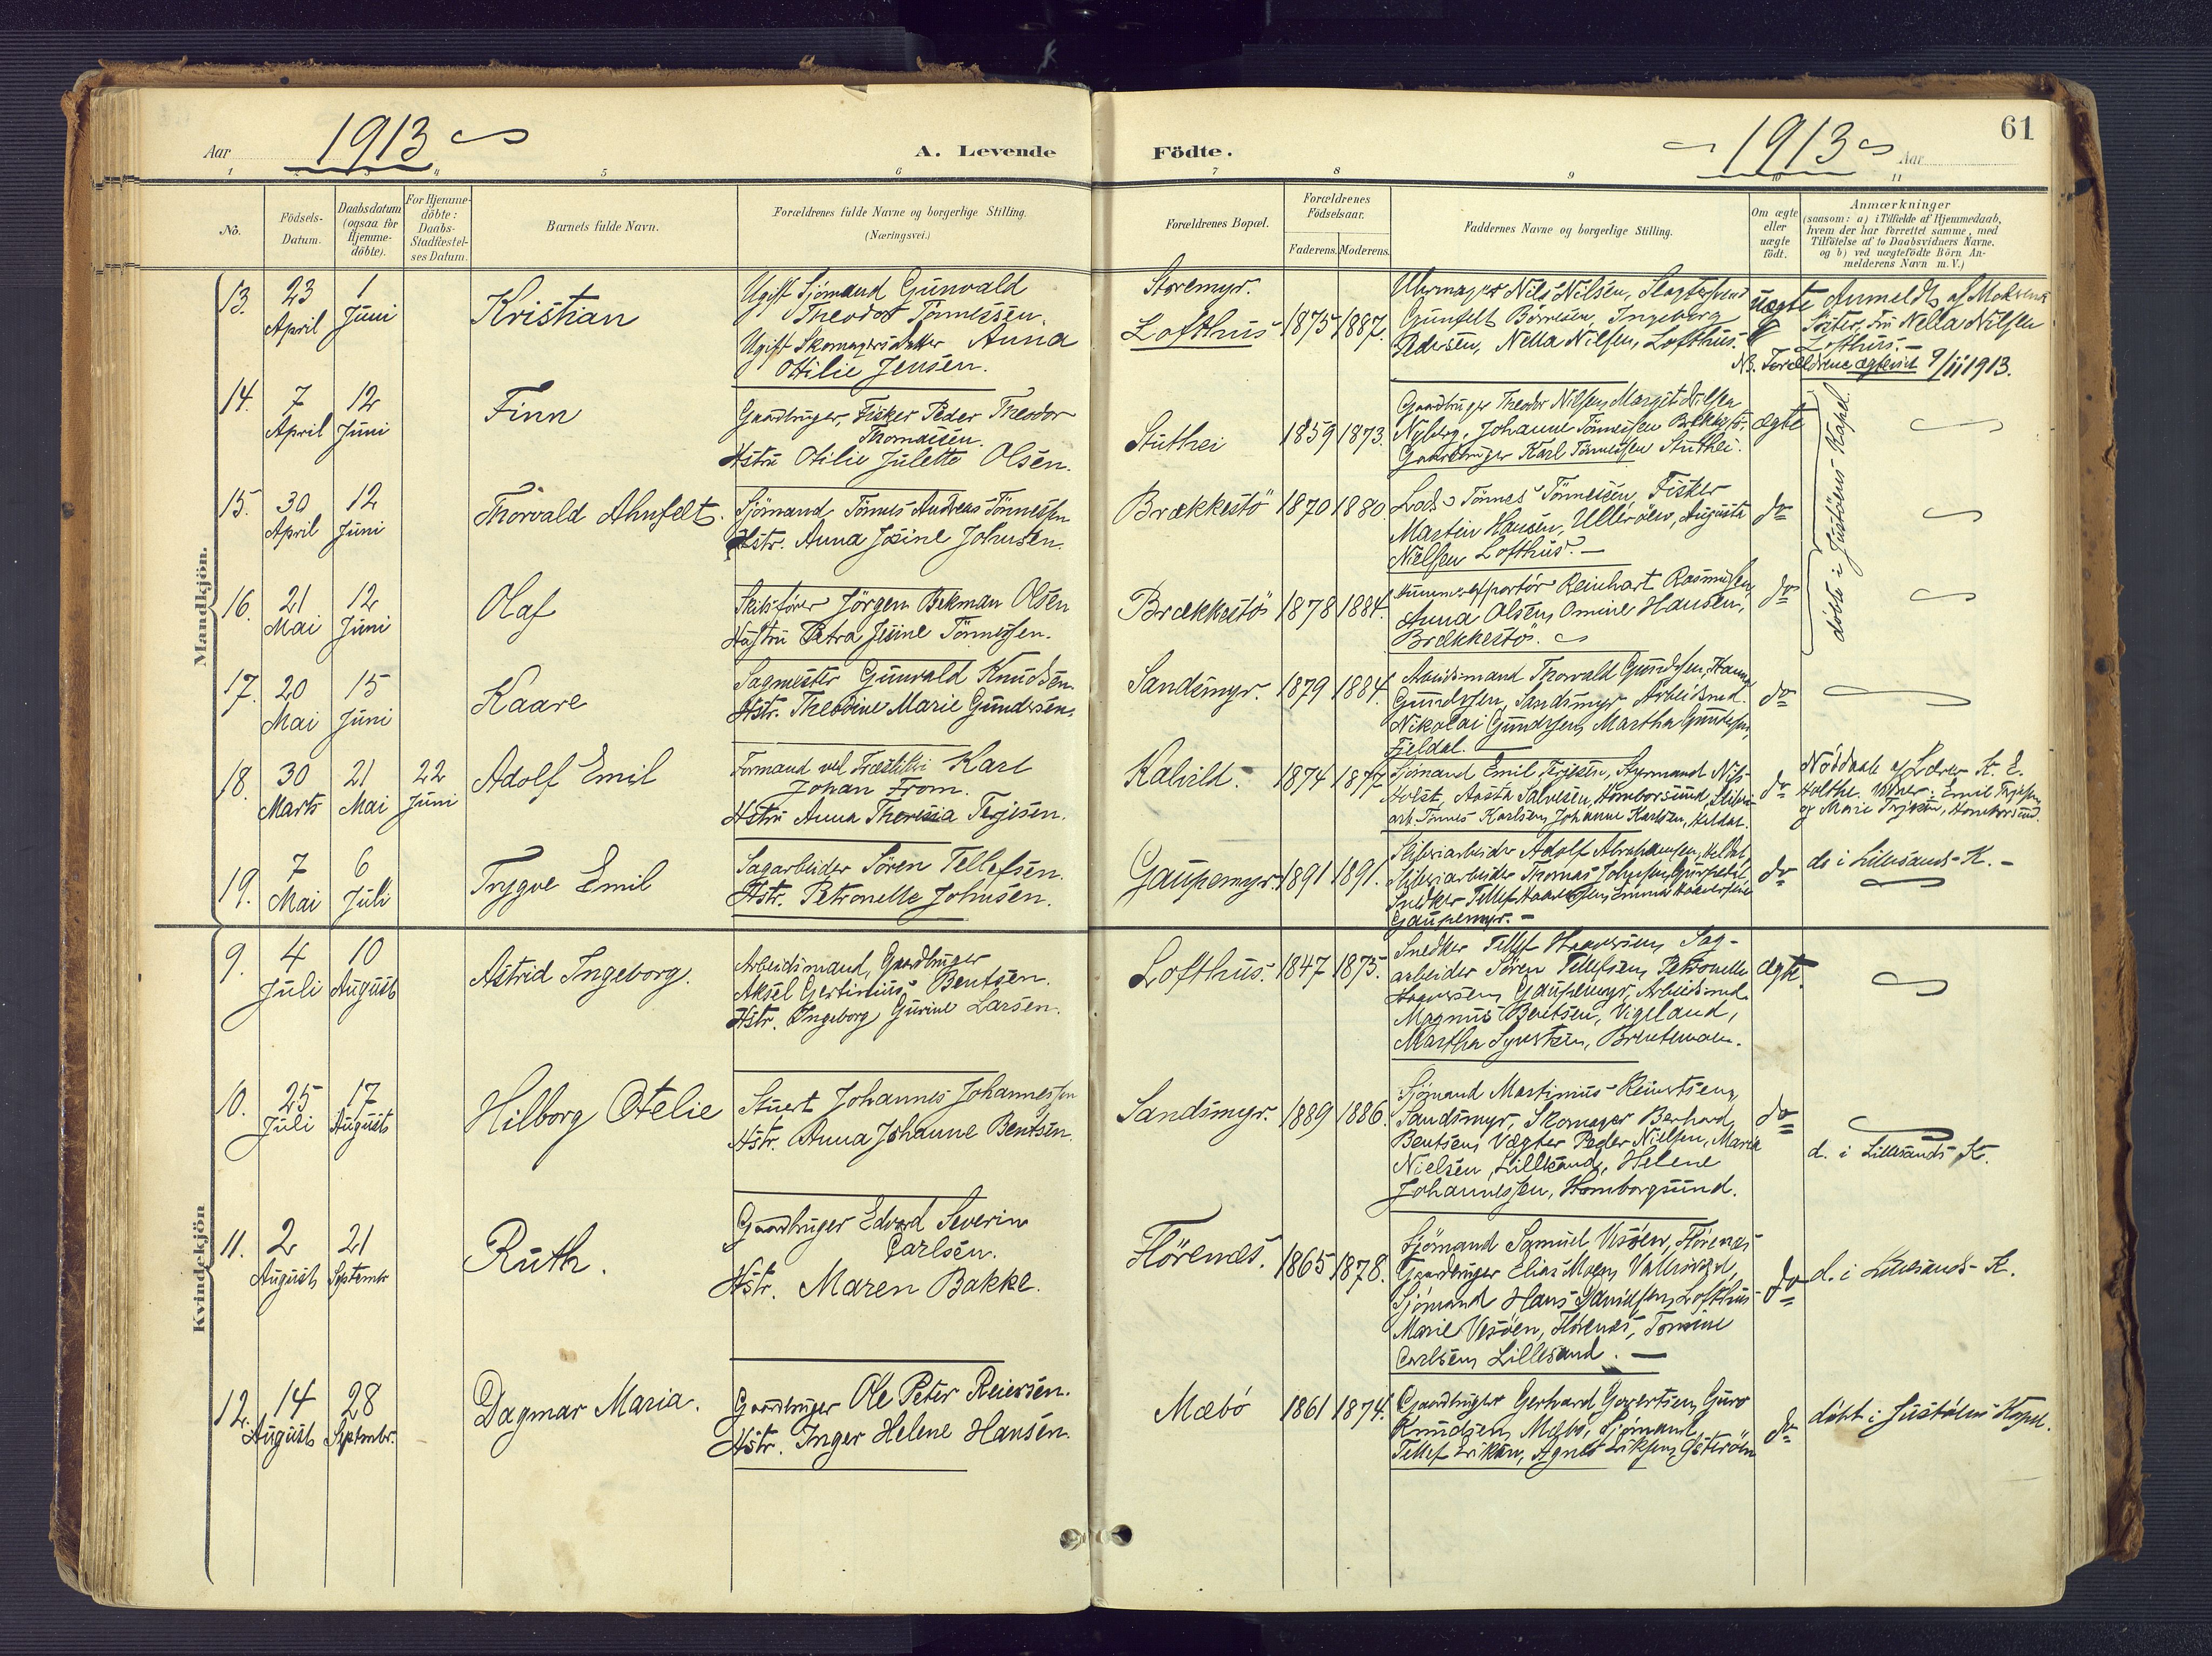 Aar 1913
A. Levende
Födte.
1913 Aar
61
1 2 3 4 5 6 7 8 9 10 11
No.
Födsels-Datum.
Daabsdatum (ogsaa for Hjemme-döbte).
For Hjemme-döbte: Daabs-Stadfæstel-ses Datum.
Barnets fulde Navn.
Forældrenes fulde Navne og borgerlige Stilling.
(Næringsvei.)
Forældrenes Bopæl.
Forældrenes Födselsaar.
Faderens. Moderens.
Faddernes Navne og borgerlige Stilling.
Om ægte eller uægte födt.
Anmærkninger
(saasom: a) i Tilfælde af Hjemmedaab,
hvem der har forrettet samme, med
Tilföielse af to Daabsvidners Navne.
og b) ved uægtefödte Börn An-
melderens Navn m. V.)
Mandkjön.
13. 23 April 1 Juni
Kristian
Ugift Sjömand Gunvald
Theodor Tönnessen.
Ugift Skomagersdatter Anna
Otilie Jensen.
Storemyr.
Lofthus 1875 1887.
Uhrmager Nils Nilsen,
Ingeborg
Pedersen, Nella Nilsen, Lofthus.
uægte
Anmeldt af Moderens
Söster, Fru Nella Nilsen
Lofthus.
NB. Forældrene ægteviet 9/11 1913.
14. 7 April 12 Juni
Finn
Gaardbruger, Fisker Peder Theodor
Thomassen.
Hstru Otilie Julette Olsen.
Stuthei 1859 1873.
Gaardbruger Theodor Nilsen, Margit Nilsen
Nyberg, Johanne Tönnessen Brekkestö.
Gaardbruger Karl Tönnessen Stuthei.
ægte
döbte i Justöens Kapel.
15. 30 April 12 Juni
Thorvald Ahnfelt.
Sjömand Tönnes Andreas Tönnessen
Hstr. Anna Josine Johnsen.
Brækkestö 1870 1880.
Lods Tönnes Tönnessen, Fisker
Martin Hansen, Ulleröen, Augusta
Nielsen Lofthus.
do
16. 21 Mai 12 Juni
Olaf
Skibsförer Jörgen Bekman Olsen
Hustru Petra Josine Tönnessen.
Brækkestö 1878 1884.
Reinhart Rasmussen,
Anna Olsen, Omine Hansen,
Brækkestö.
do
17. 20 Mai 15 Juni
Kaare
Sagmester Gunvald Knudsen.
Hstr. Theodine Marie Gundersen.
Sandsmyr. 1879 1884.
Arbeidsmand Thorvald Gundersen, Hanna
Gundersen, Sandsmyr. Arbeidsmd.
Nikolai Gundersen, Martha Gundersen,
Fjeldal.
do
18. 30 Marts 21 Mai 22 Juni
Adolf Emil
Formand ved Træsliberi Karl
Johan From.
Hstru Anna Theresia Terjesen.
Kalvild. 1874 1877
Sjömand Emil Terjesen, Styrmand Nils
Holst, Aasta Salvesen, Homborsund, Sliberi-
arb. Tönnes Karlsen, Johanne Karlsen, Heldal.
do
Nöddaab af Lærer K. E.
Holthe. Vidner: Emil Terjesen
og Marie Terjesen, Homborsund.
19. 7 Mai 6 Juli
Trygve Emil
Sagarbeider Sören Tellefsen.
Hstr. Petronelle Johnsen.
Gaupemyr. 1891 1891.
Sliberiarbeider Adolf Abrahamsen, Heldal,
Sliberiarbeider Thomas Johnsen,
Snedker Tellef Haaversen, Emma Haaversen
Gaupemyr.
do
db i Lillesands K.
Kvindekjön
9. 4 Juli 10 August
Astrid Ingeborg.
Arbeidsmand, Gaardbruger
Aksel Gertinius Bentsen.
Hstr. Ingeborg Gurine Larsen.
Lofthus. 1847 1875.
Snedker Tellef Haaversen, Sag-
arbeider Sören Tellefsen, Petronelle
Haaversen, Gaupemyr, Arbeidsmd.
Magnus Bentsen, Vigeland,
Martha Syvertsen, Brentemoen.
ægte.
10. 25 Juli 17 August
Hilborg Otelie
Stuert Johannes Johannessen
Hstr. Anna Johanne Bentsen.
Sandsmyr. 1889 1886.
Sjömand Martinius Reiertsen,
Sandsmyr, Skomager Berhard
Bentsen, Vægter Peder Nielsen, Maria
Nielsen, Lillesand, Helene
Johannessen, Homborgsund.
do
d. i Lillesands K.
11. 2 August 21 September
Ruth.
Gaardbruger Edvard Severin
Carlsen.
Hstr. Maren Bakke.
Flörenæs. 1865 1878.
Sjömand Samuel Vesöen, Flörenæs
Gaardbruger Elias Moen, Vallesværd,
Sjömand Hans Danielsen, Lofthus
Marie Vesöen, Flörenæs, Tomine
Carlsen, Lillesand.
do
d. i Lillesands K.
12. 14 August 28 Septembr.
Dagmar Maria.
Gaardbruger Ole Peter Reiersen.
Hstr. Inger Helene Hansen.
Mæbö 1861 1874.
Gaardbruger Gerhard Govertsen, Guro
Knudsen, Mæbö, Sjömand
Tellef Eriksen, Agnes Eriksen, Österöen
do
döbt i Justöens Kapel.